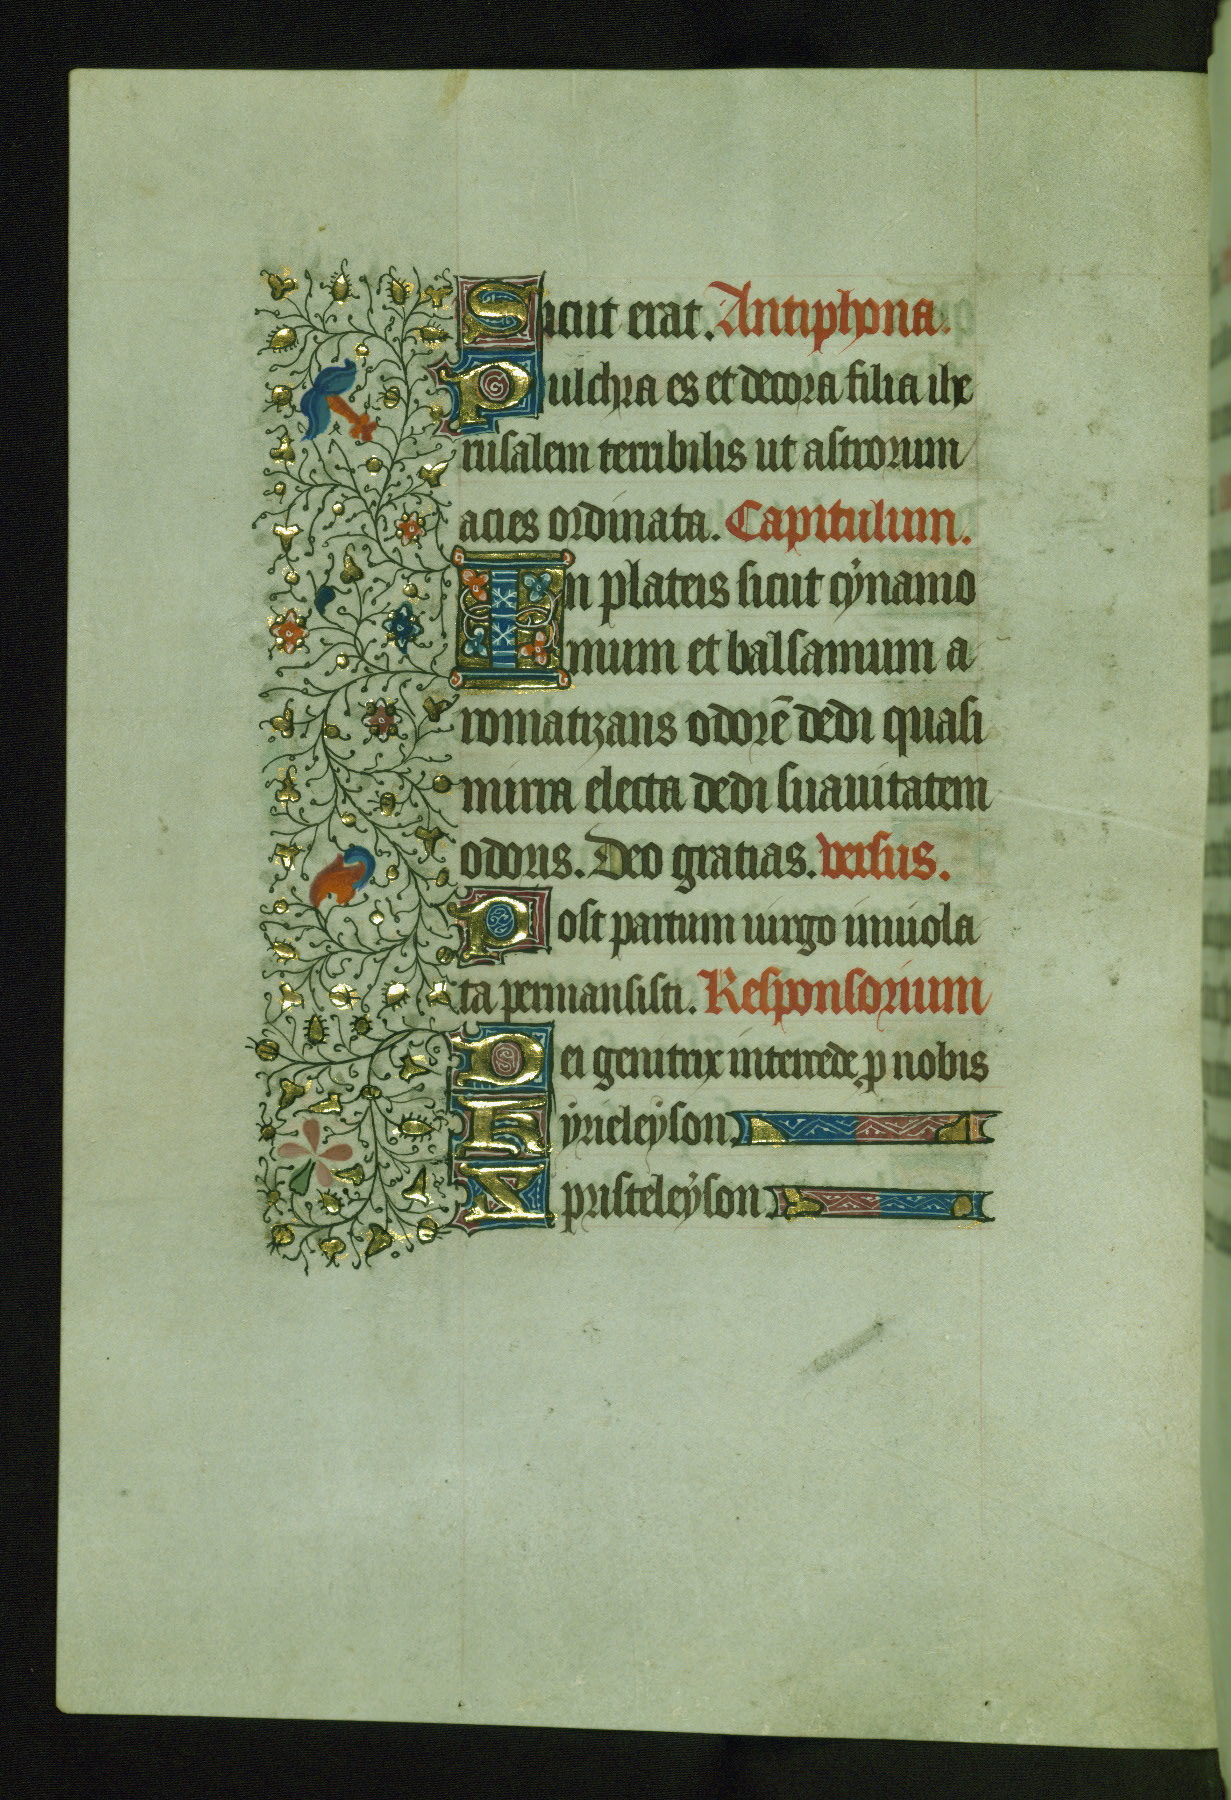 Sicut erat. Antiphona.
Pulchra es et decora filia ihe
rusalem terribilis ut astrorum
acies ordinata. Capitulum.
In plateis sicut cynamo
mum et balsamum a
romatizans odorē dedi quasi
mirra electa dedi suauitatem
odoris. Deo gratias. versus.
Post partum uirgo inuiola
ta permansisti. Responsorium
Dei genitrix intercede p nobis
kyrieleyson
xpristeleyson